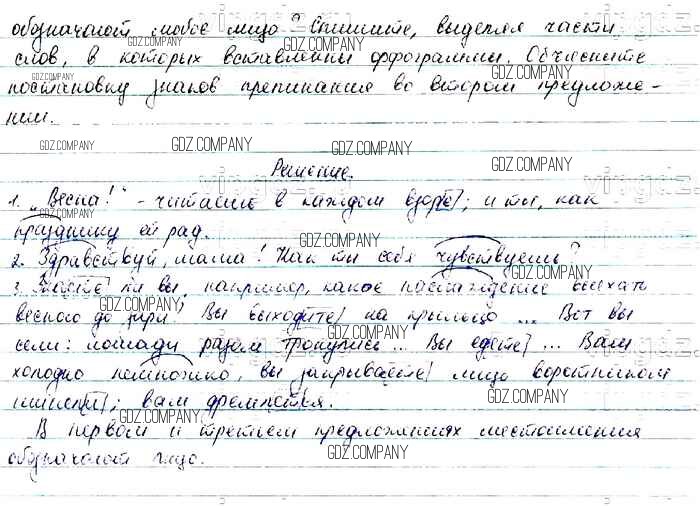 обозначают любое лицо? Спишите, выделяя части
слов, в которых вставлены орфограммы. Объясните
постановку знаков препинания во втором предложе-
нии.
Решение.
1. "Весна!" - читаешь в каждом взоре; и ты, как
празднику ей рад.
2. Здравствуй, мама! Как ты себя чувствуешь?
3. Знаете ли вы, например, какое наслаждение выехать
весною до зари? Вы выходите на крыльцо ... Вот вы
сели: лошади разом тронулись... Вы едете ... Вам
холодно немножко, вы закрываете лицо воротником
шинели; вам дремлется.
В первом и третьем предложениях местоимения
обозначают лицо.
GDZ.COMPANY